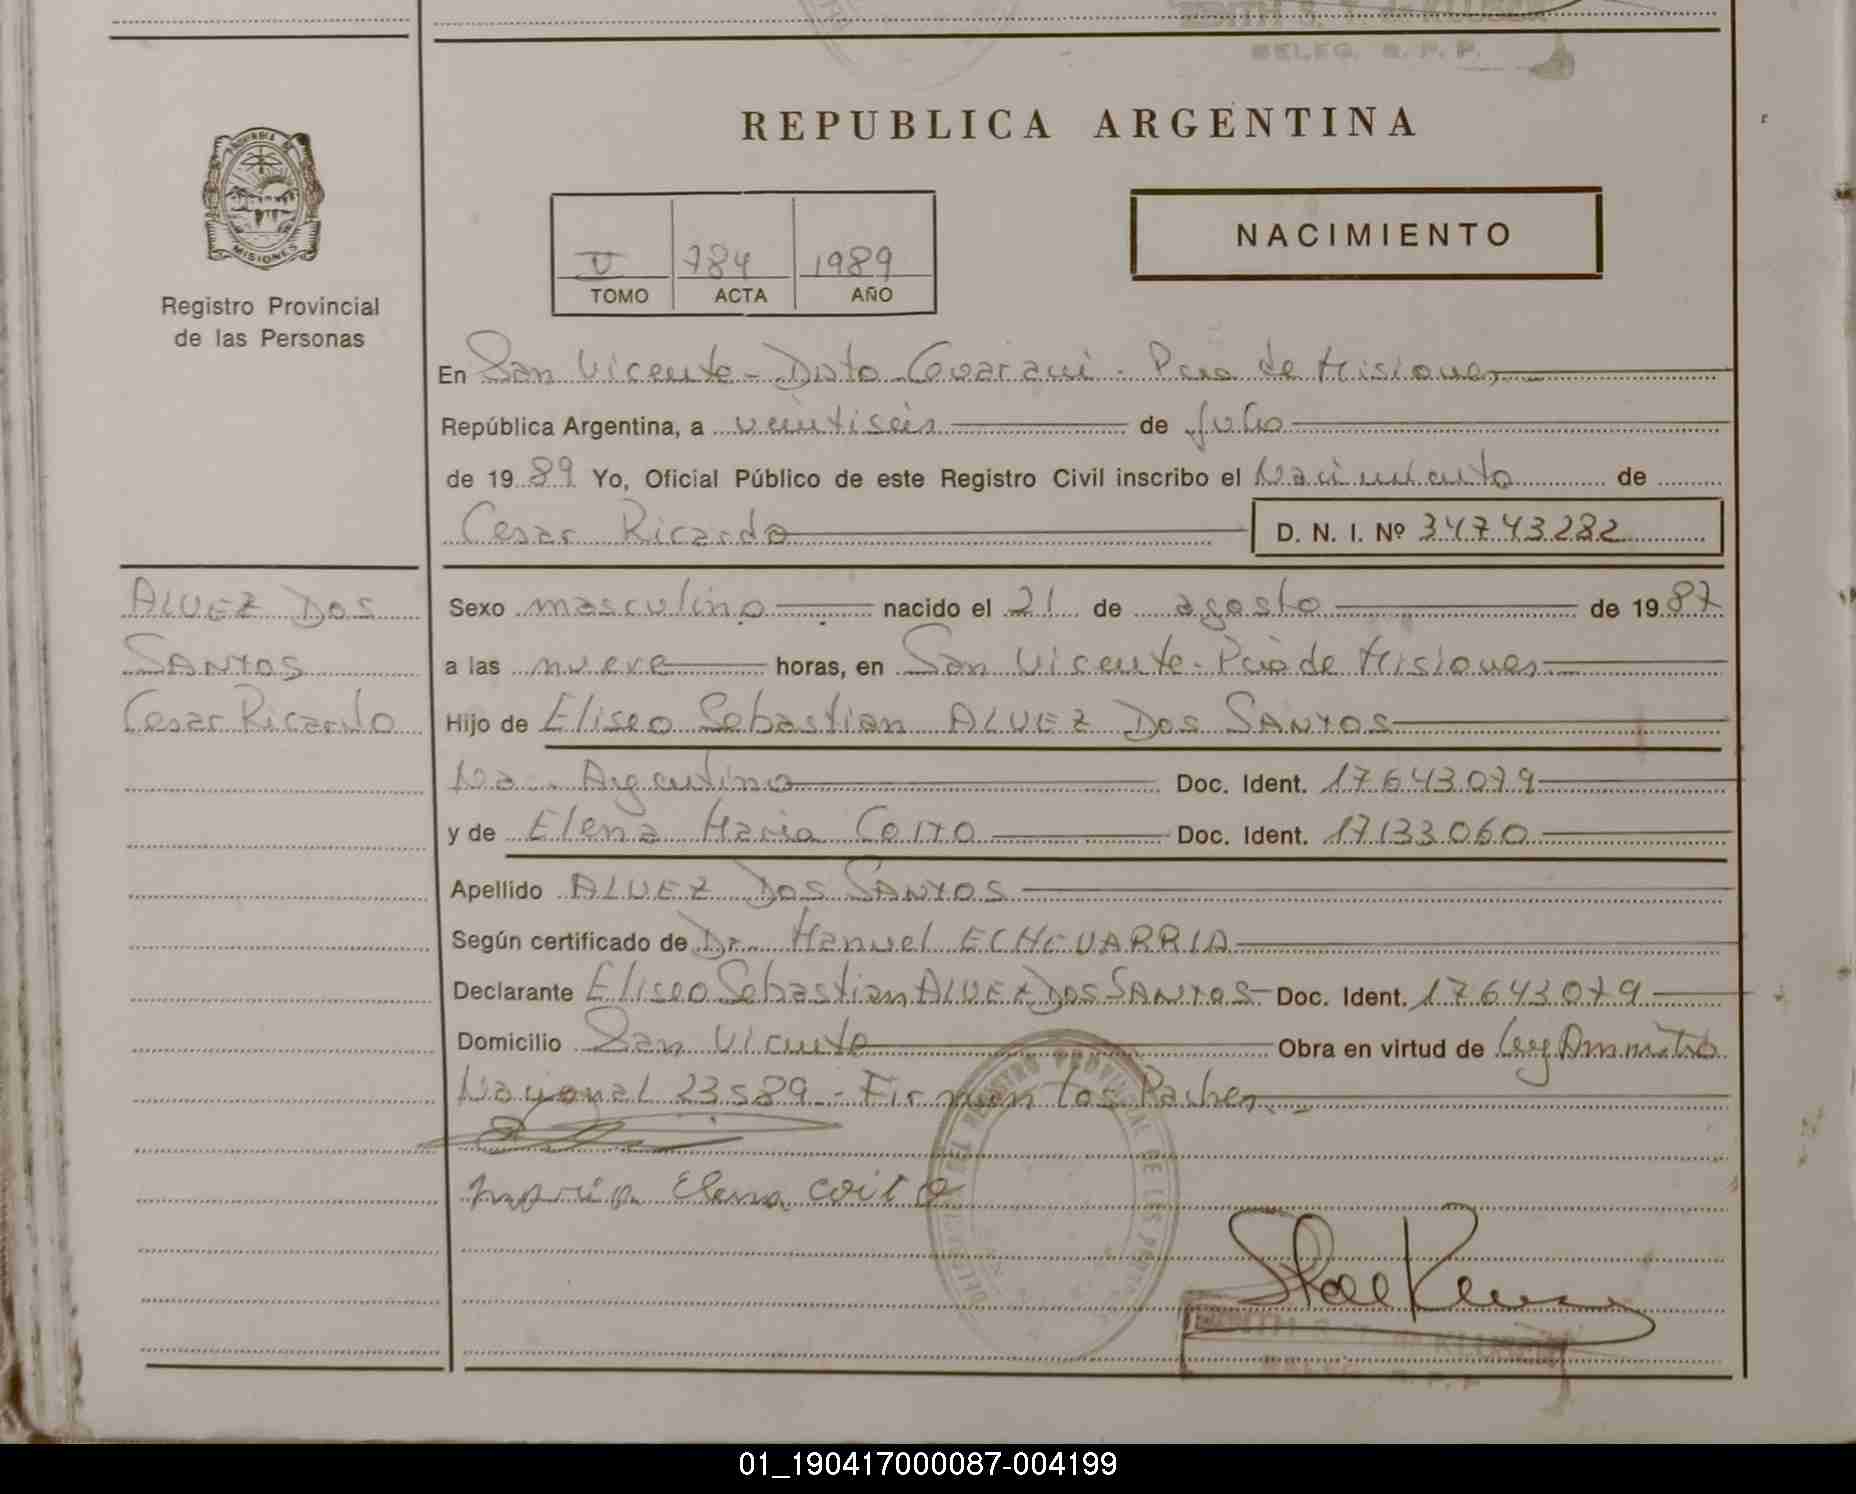 REPUBLICA ARGENTINA
PROVINCIA DE
MISIONES
Registro Provincial
de las Personas
V 784 1989
TOMO ACTA AÑO
NACIMIENTO
En San Vicente - Dpto Guarani - Pcia de Misiones
República Argentina, a veintiseis de Julio
de 1989 Yo, Oficial Público de este Registro Civil inscribo el Nacimiento de
Cesar Ricardo D. N. I. Nº 34743282
ALVEZ DOS
SANTOS
Cesar Ricardo
Sexo masculino nacido el 21 de agosto de 1987
a las nueve horas, en San Vicente - Pcia de Misiones
Hijo de Eliseo Sebastian ALVEZ DOS SANTOS
Na. Argentino Doc. Ident. 17643079
y de Elena Maria COITO Doc. Ident. 17133060
Apellido ALVEZ DOS SANTOS
Según certificado de Dr. Manuel ECHEVARRIA
Declarante Eliseo Sebastian ALVEZ DOS SANTOS Doc. Ident. 17643079
Domicilio San Vicente Obra en virtud de Ley
Nacional 23589 - Firman los Padres.-
Maria Elena Coito
DELEG. R. P. P.
01_190417000087-004199